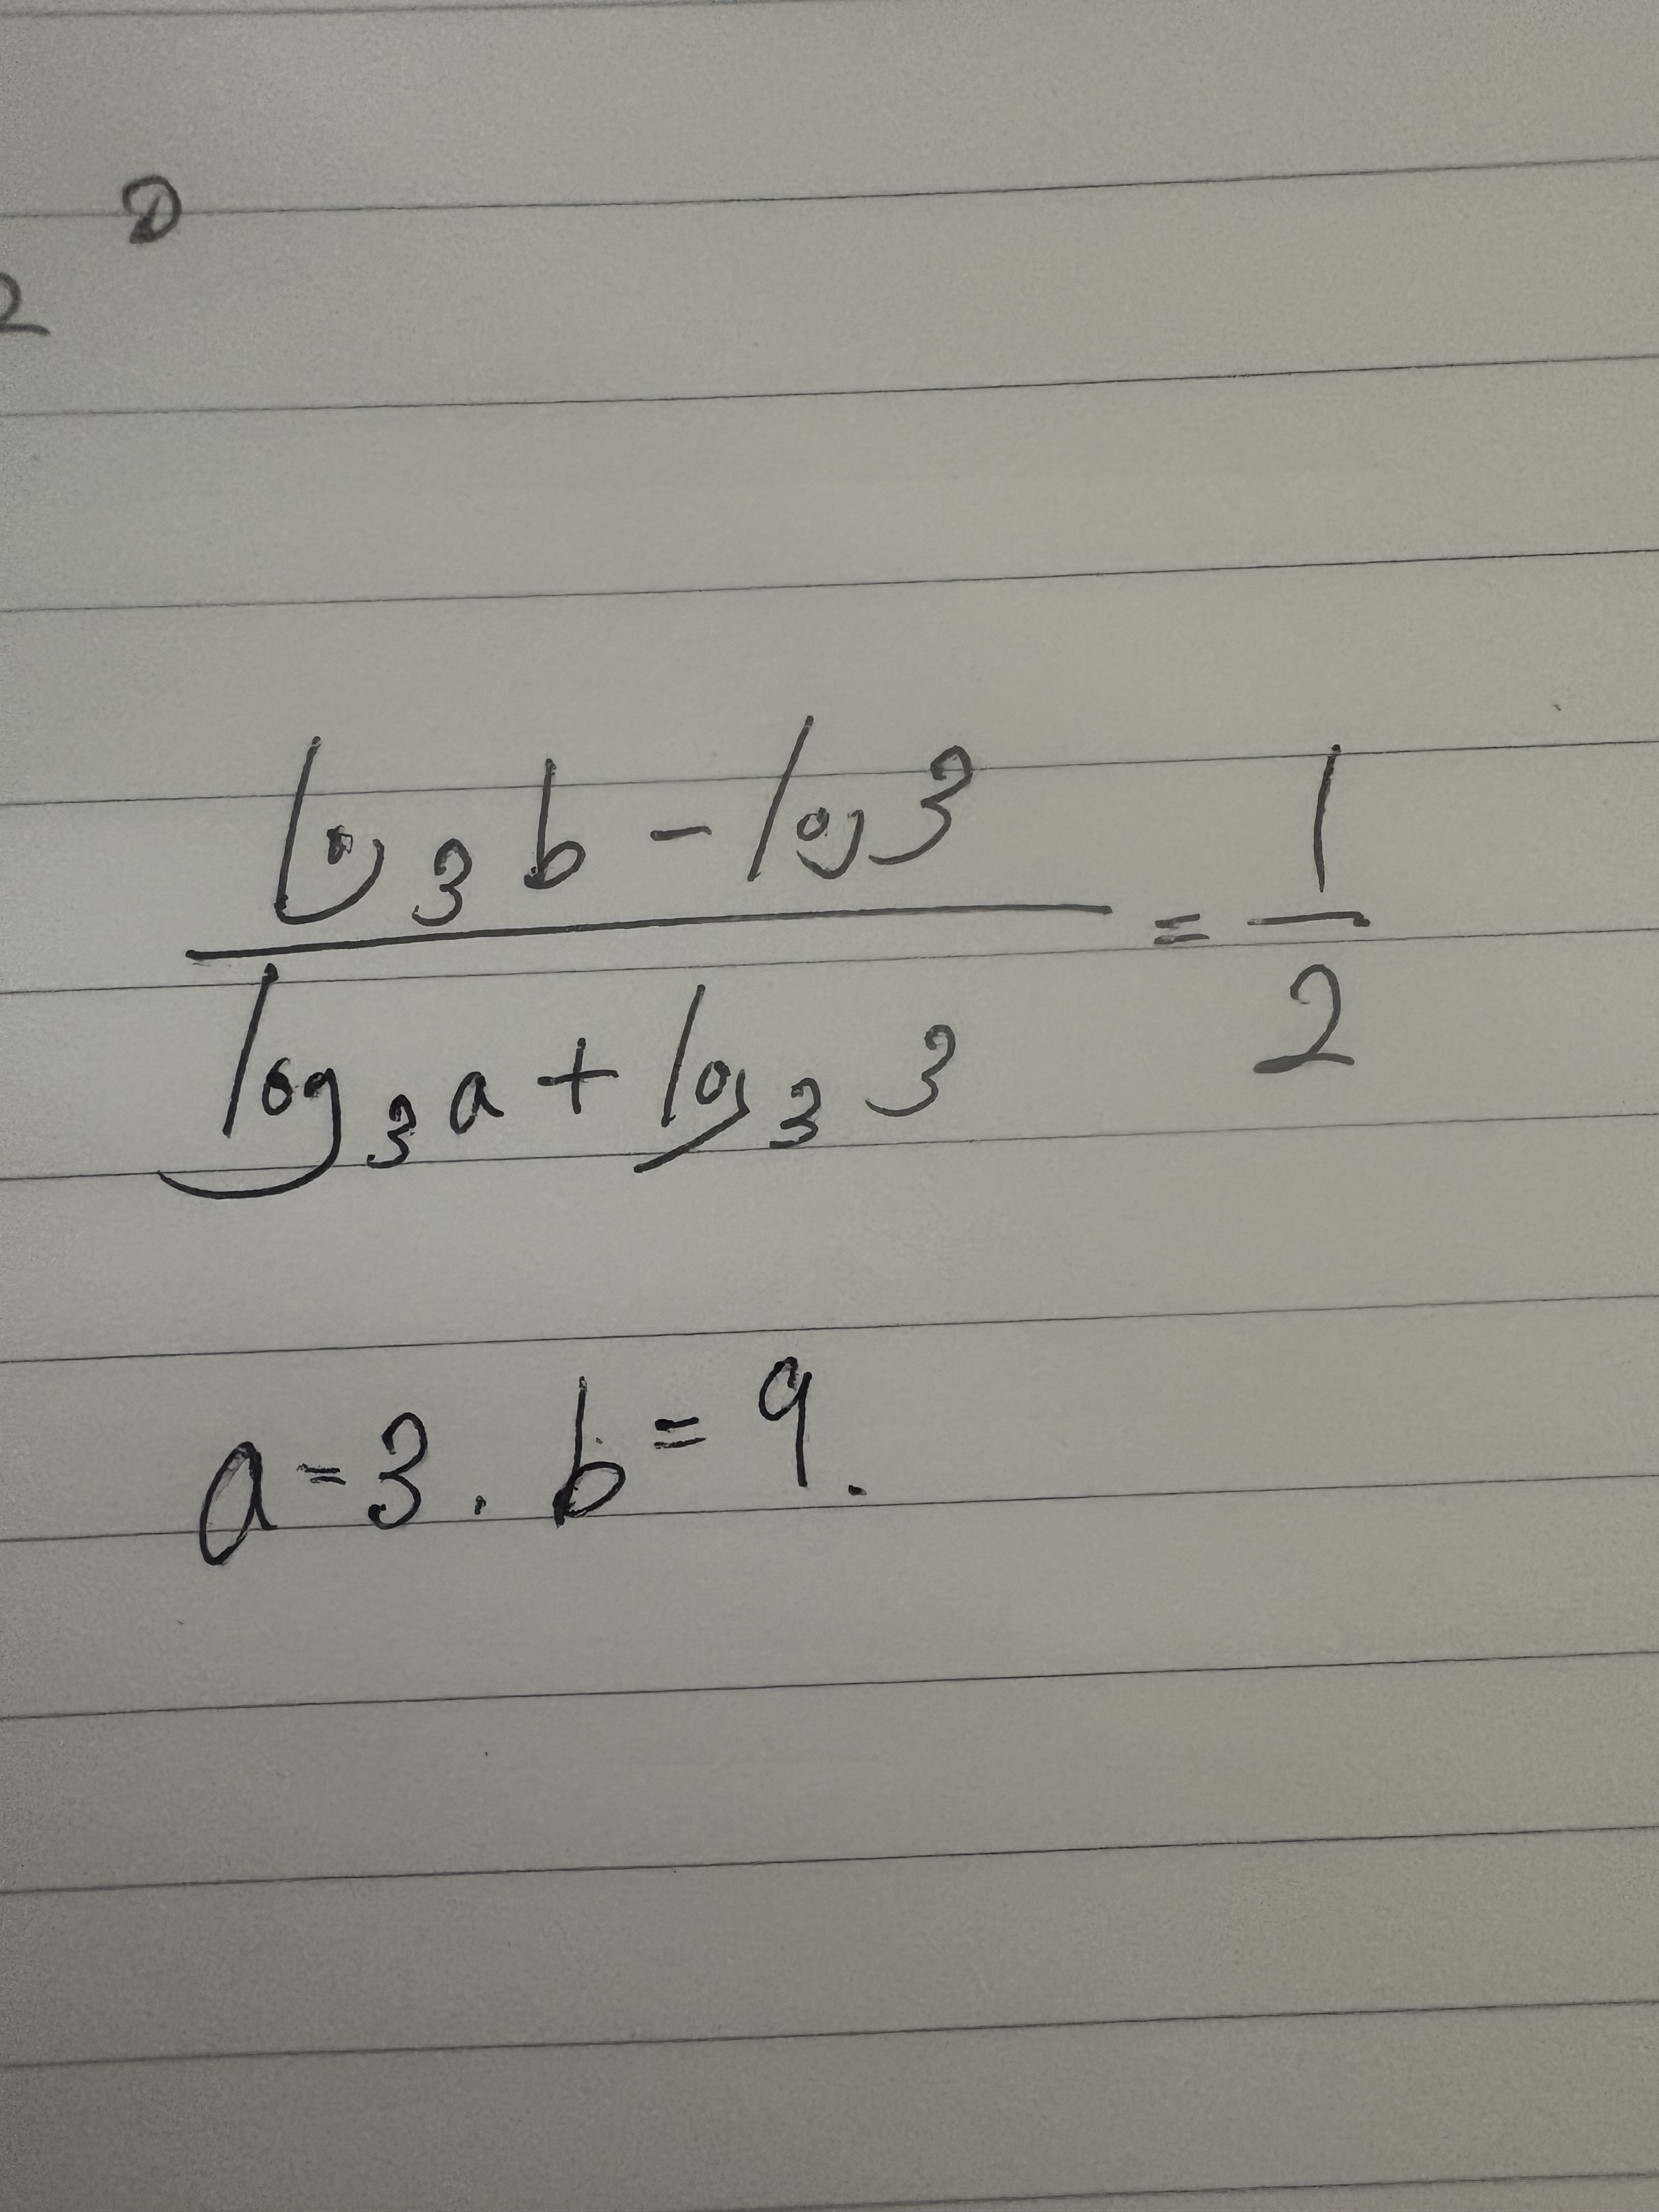 2
2
log₃ b - log 3
= 1/2
log₃ a + log₃ 3
a = 3 . b = 9 .